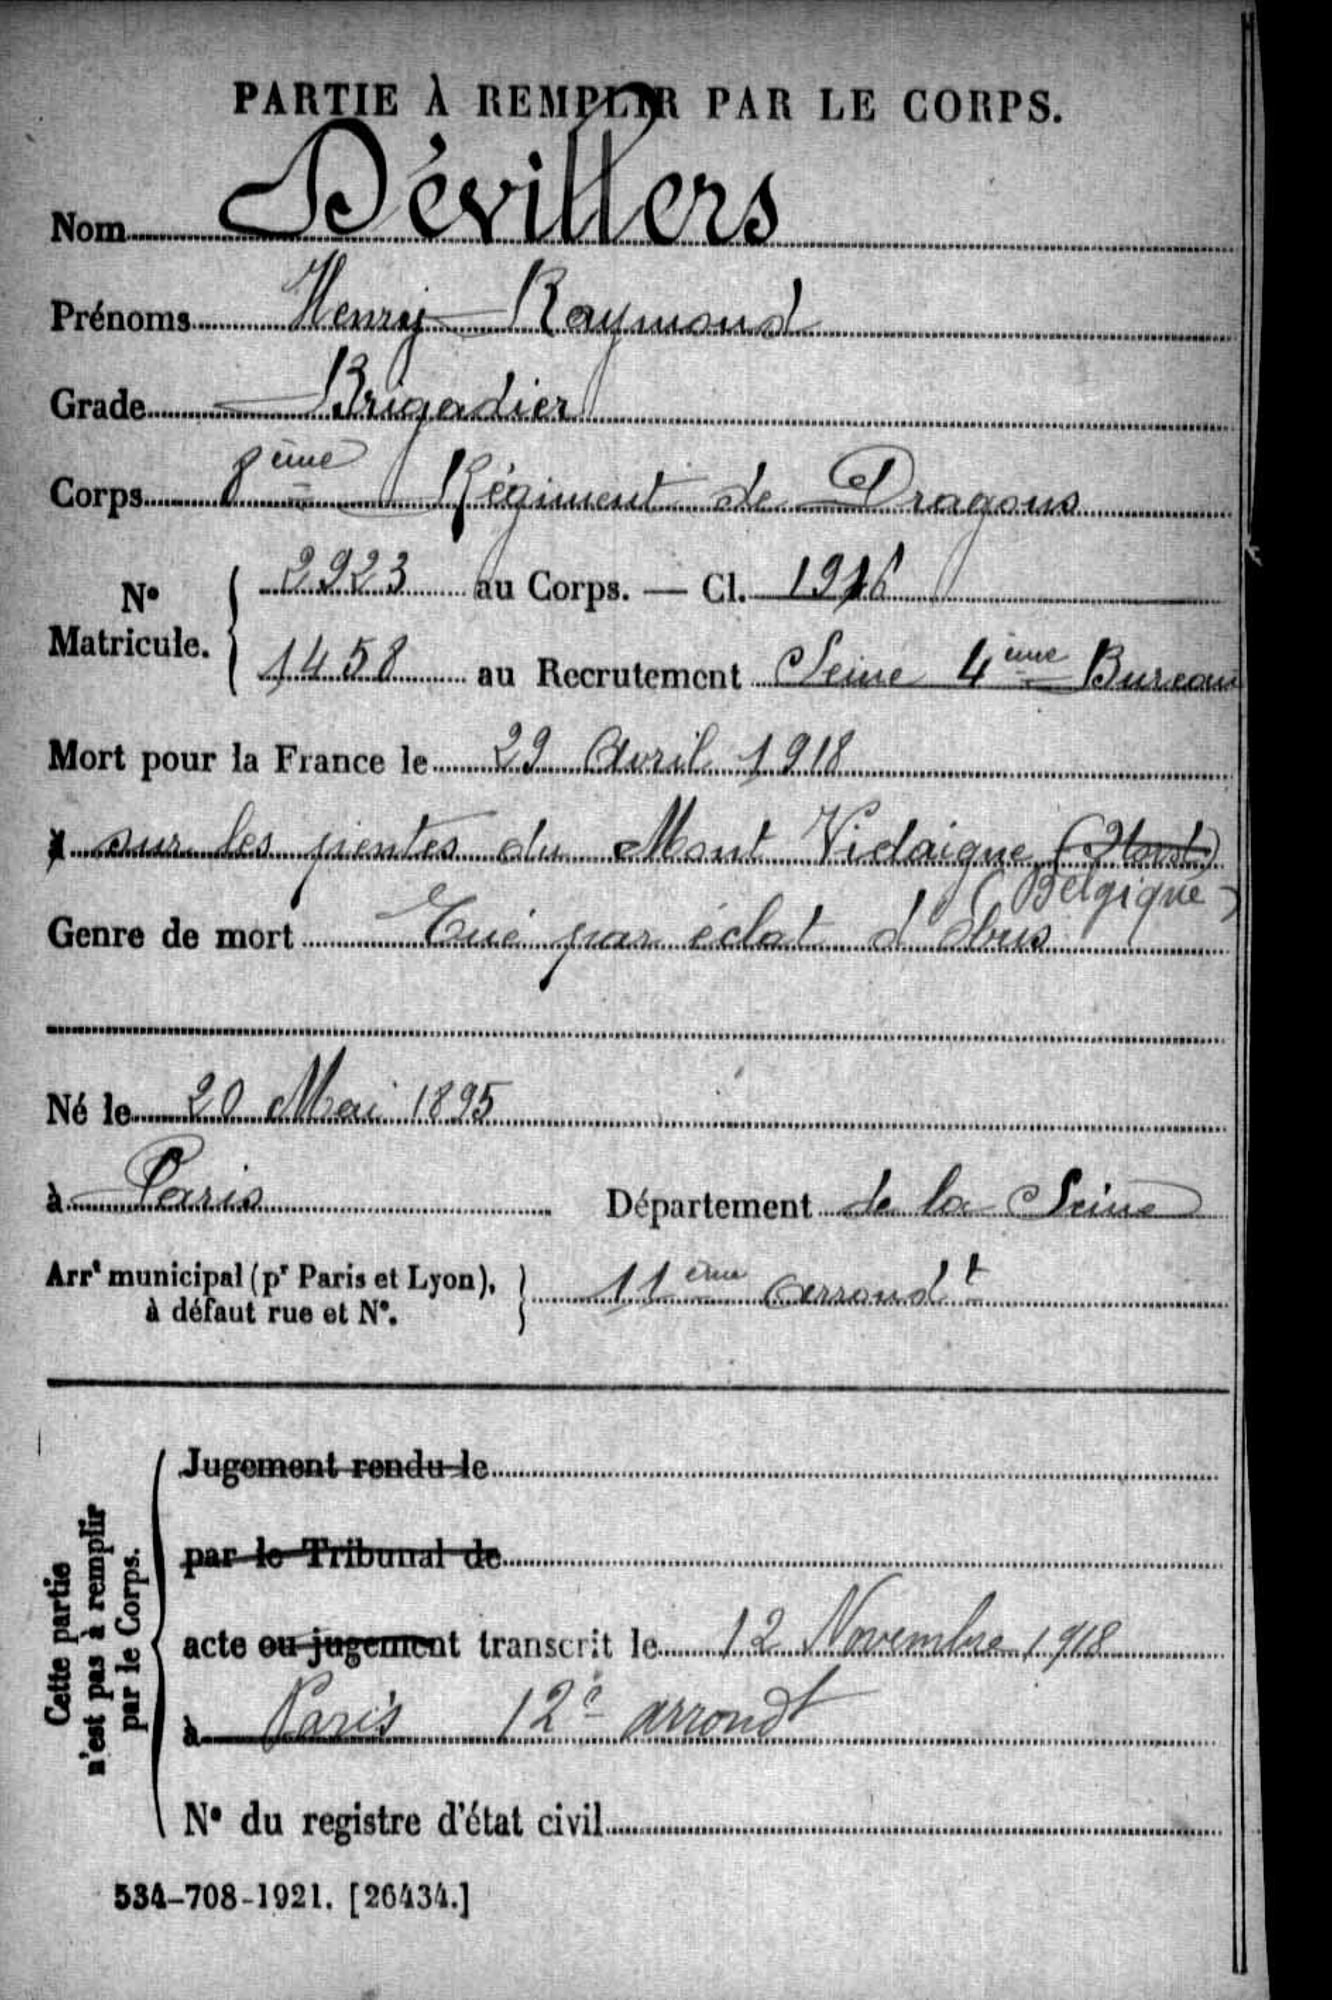 PARTIE À REMPLIR PAR LE CORPS.
Nom Dévillers
Prénoms Henry Raymond
Grade Brigadier
Corps 8ème Régiment de Dragons
No Matricule. 2923 au Corps. — Cl. 1916
1458 au Recrutement Seine 4ème Bureau
Mort pour la France le 29 Avril 1918
à sur les pentes du Mont Vidaigne
(Belgique)
Genre de mort Tué par éclat d'obus
Né le 20 Mai 1895
à Paris Département de la Seine
Arrt municipal (pr Paris et Lyon), 11ème arrondt
à défaut rue et No.
Cette partie
n'est pas à remplir
par le Corps.
Jugement rendu le
par le Tribunal de
acte ou jugement transcrit le 12 Novembre 1918
à Paris 12e arrondt
No du registre d'état civil
534-708-1921. [26434.]